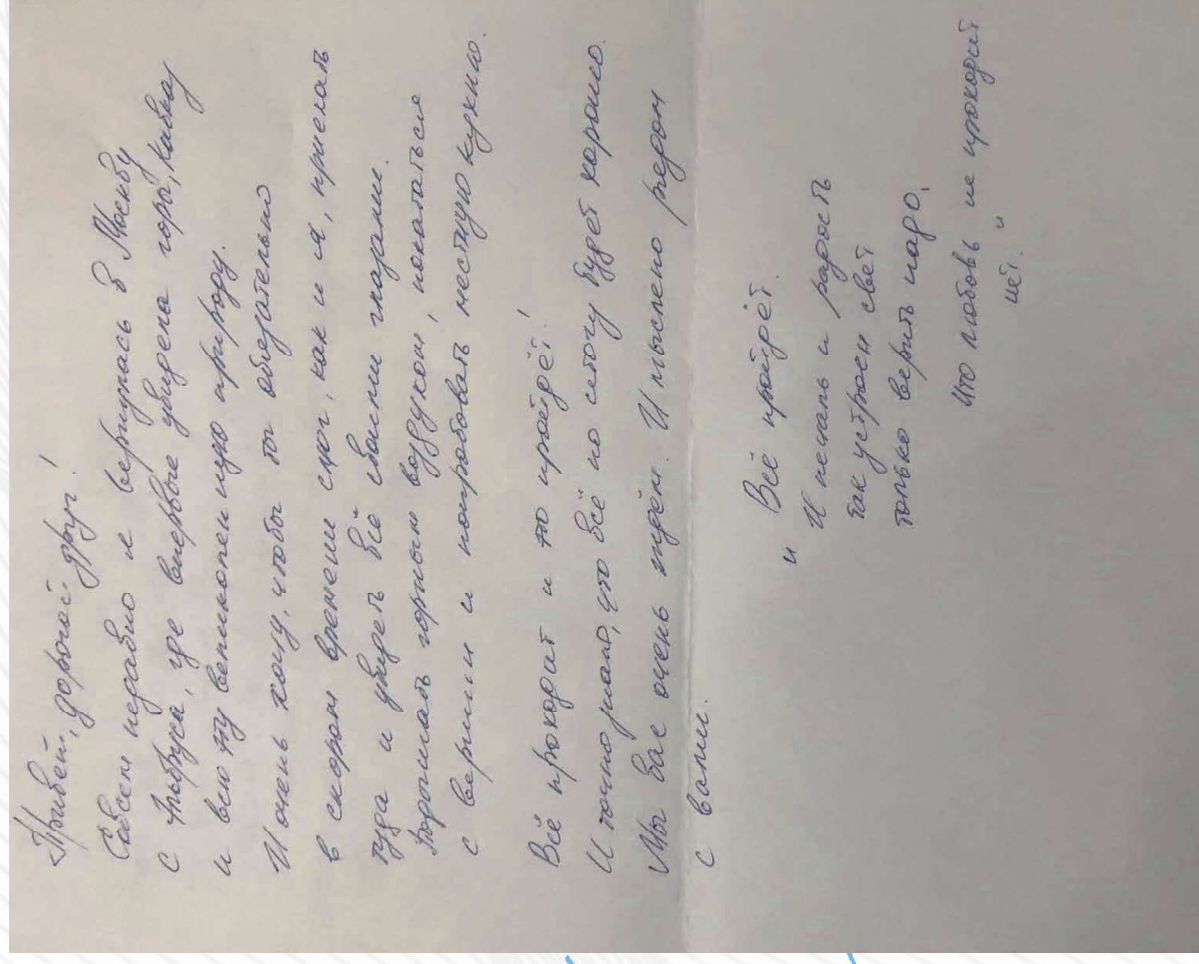 Привет, дорогой друг!
Совсем недавно я вернулась в Москву
с Эльбруса, где впервые увидела горы, Кавказ
и всю эту великолепную природу.
И очень хочу, чтобы ты обязательно
в скором времени смог, как и я, приехать
туда и увидеть всё своими глазами.
Подышать горным воздухом, покататься
с вершин и попробовать местную кухню.
Всё проходит и это пройдёт!
И точно знаю, что всё по итогу будет хорошо.
Мы вас очень ждём. И мысленно рядом
с вами.
" Всё пройдёт.
И печаль и радость
так устроен свет
только верить надо,
что любовь не проходит
нет. "